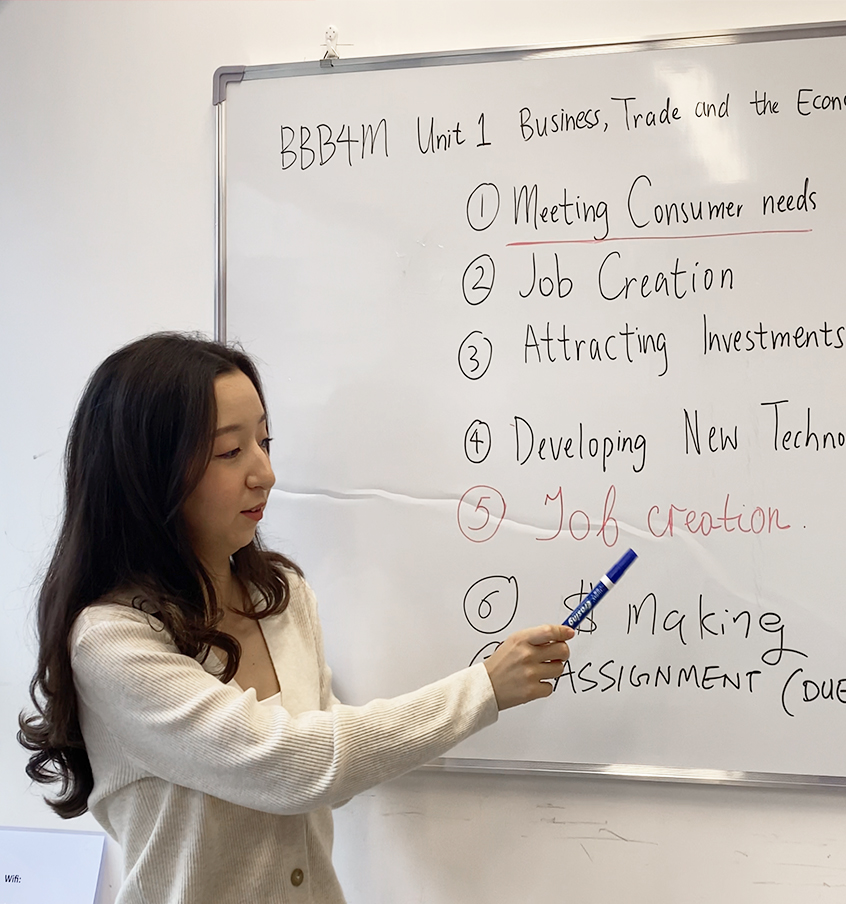 BBB4M Unit 1 Business, Trade and the Econ
① Meeting Consumer needs
② Job Creation
③ Attracting Investments
④ Developing New Techno
⑤ Job creation.
⑥ $ Making
ASSIGNMENT (DUE
Wifi: